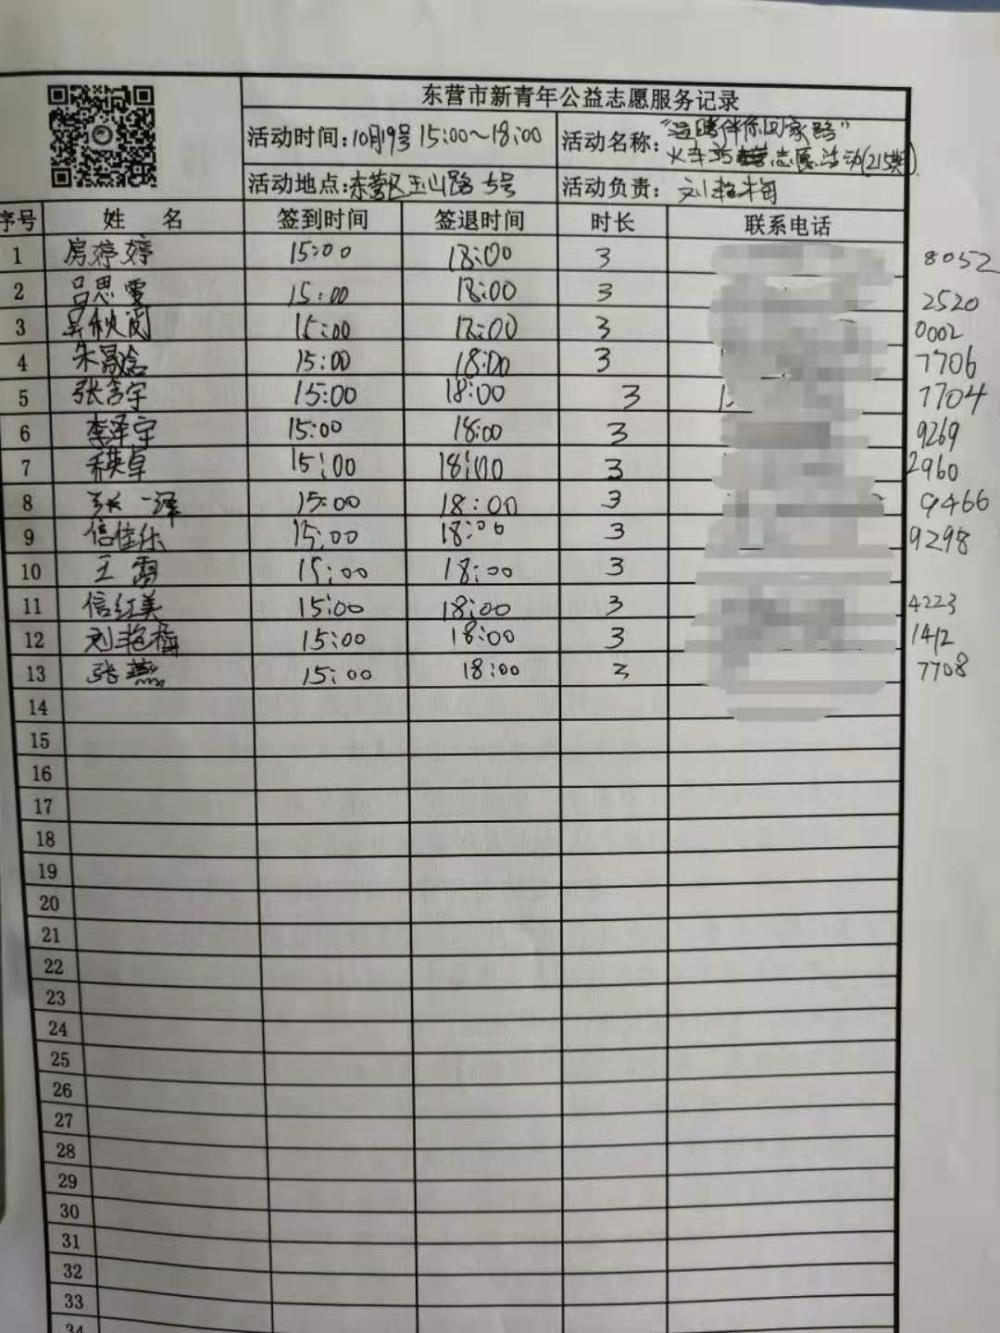 东营市新青年公益志愿服务记录
活动时间:10月9号 15:00~18:00 活动名称:"温暖伴你回家路"
火车站志愿活动(215期)
活动地点:东营区玉山路 5号 活动负责:刘艳梅
序号 姓 名 签到时间 签退时间 时长 联系电话
1 房婷婷 15:00 18:00 3 8052
2 吕思雯 15:00 18:00 3 2520
3 15:00 18:00 3 0002
4 15:00 18:00 3 7706
5 张含宇 15:00 18:00 3 7704
6 李泽宇 15:00 18:00 3 9269
7 15:00 18:00 3 2960
8 张一泽 15:00 18:00 3 9466
9 信佳乐 15:00 18:00 3 9298
10 王雷 15:00 18:00 3
11 信红美 15:00 18:00 3 4223
12 刘艳梅 15:00 18:00 3 1412
13 张燕 15:00 18:00 3 7708
14
15
16
17
18
19
20
21
22
23
24
25
26
27
28
29
30
31
32
33
34